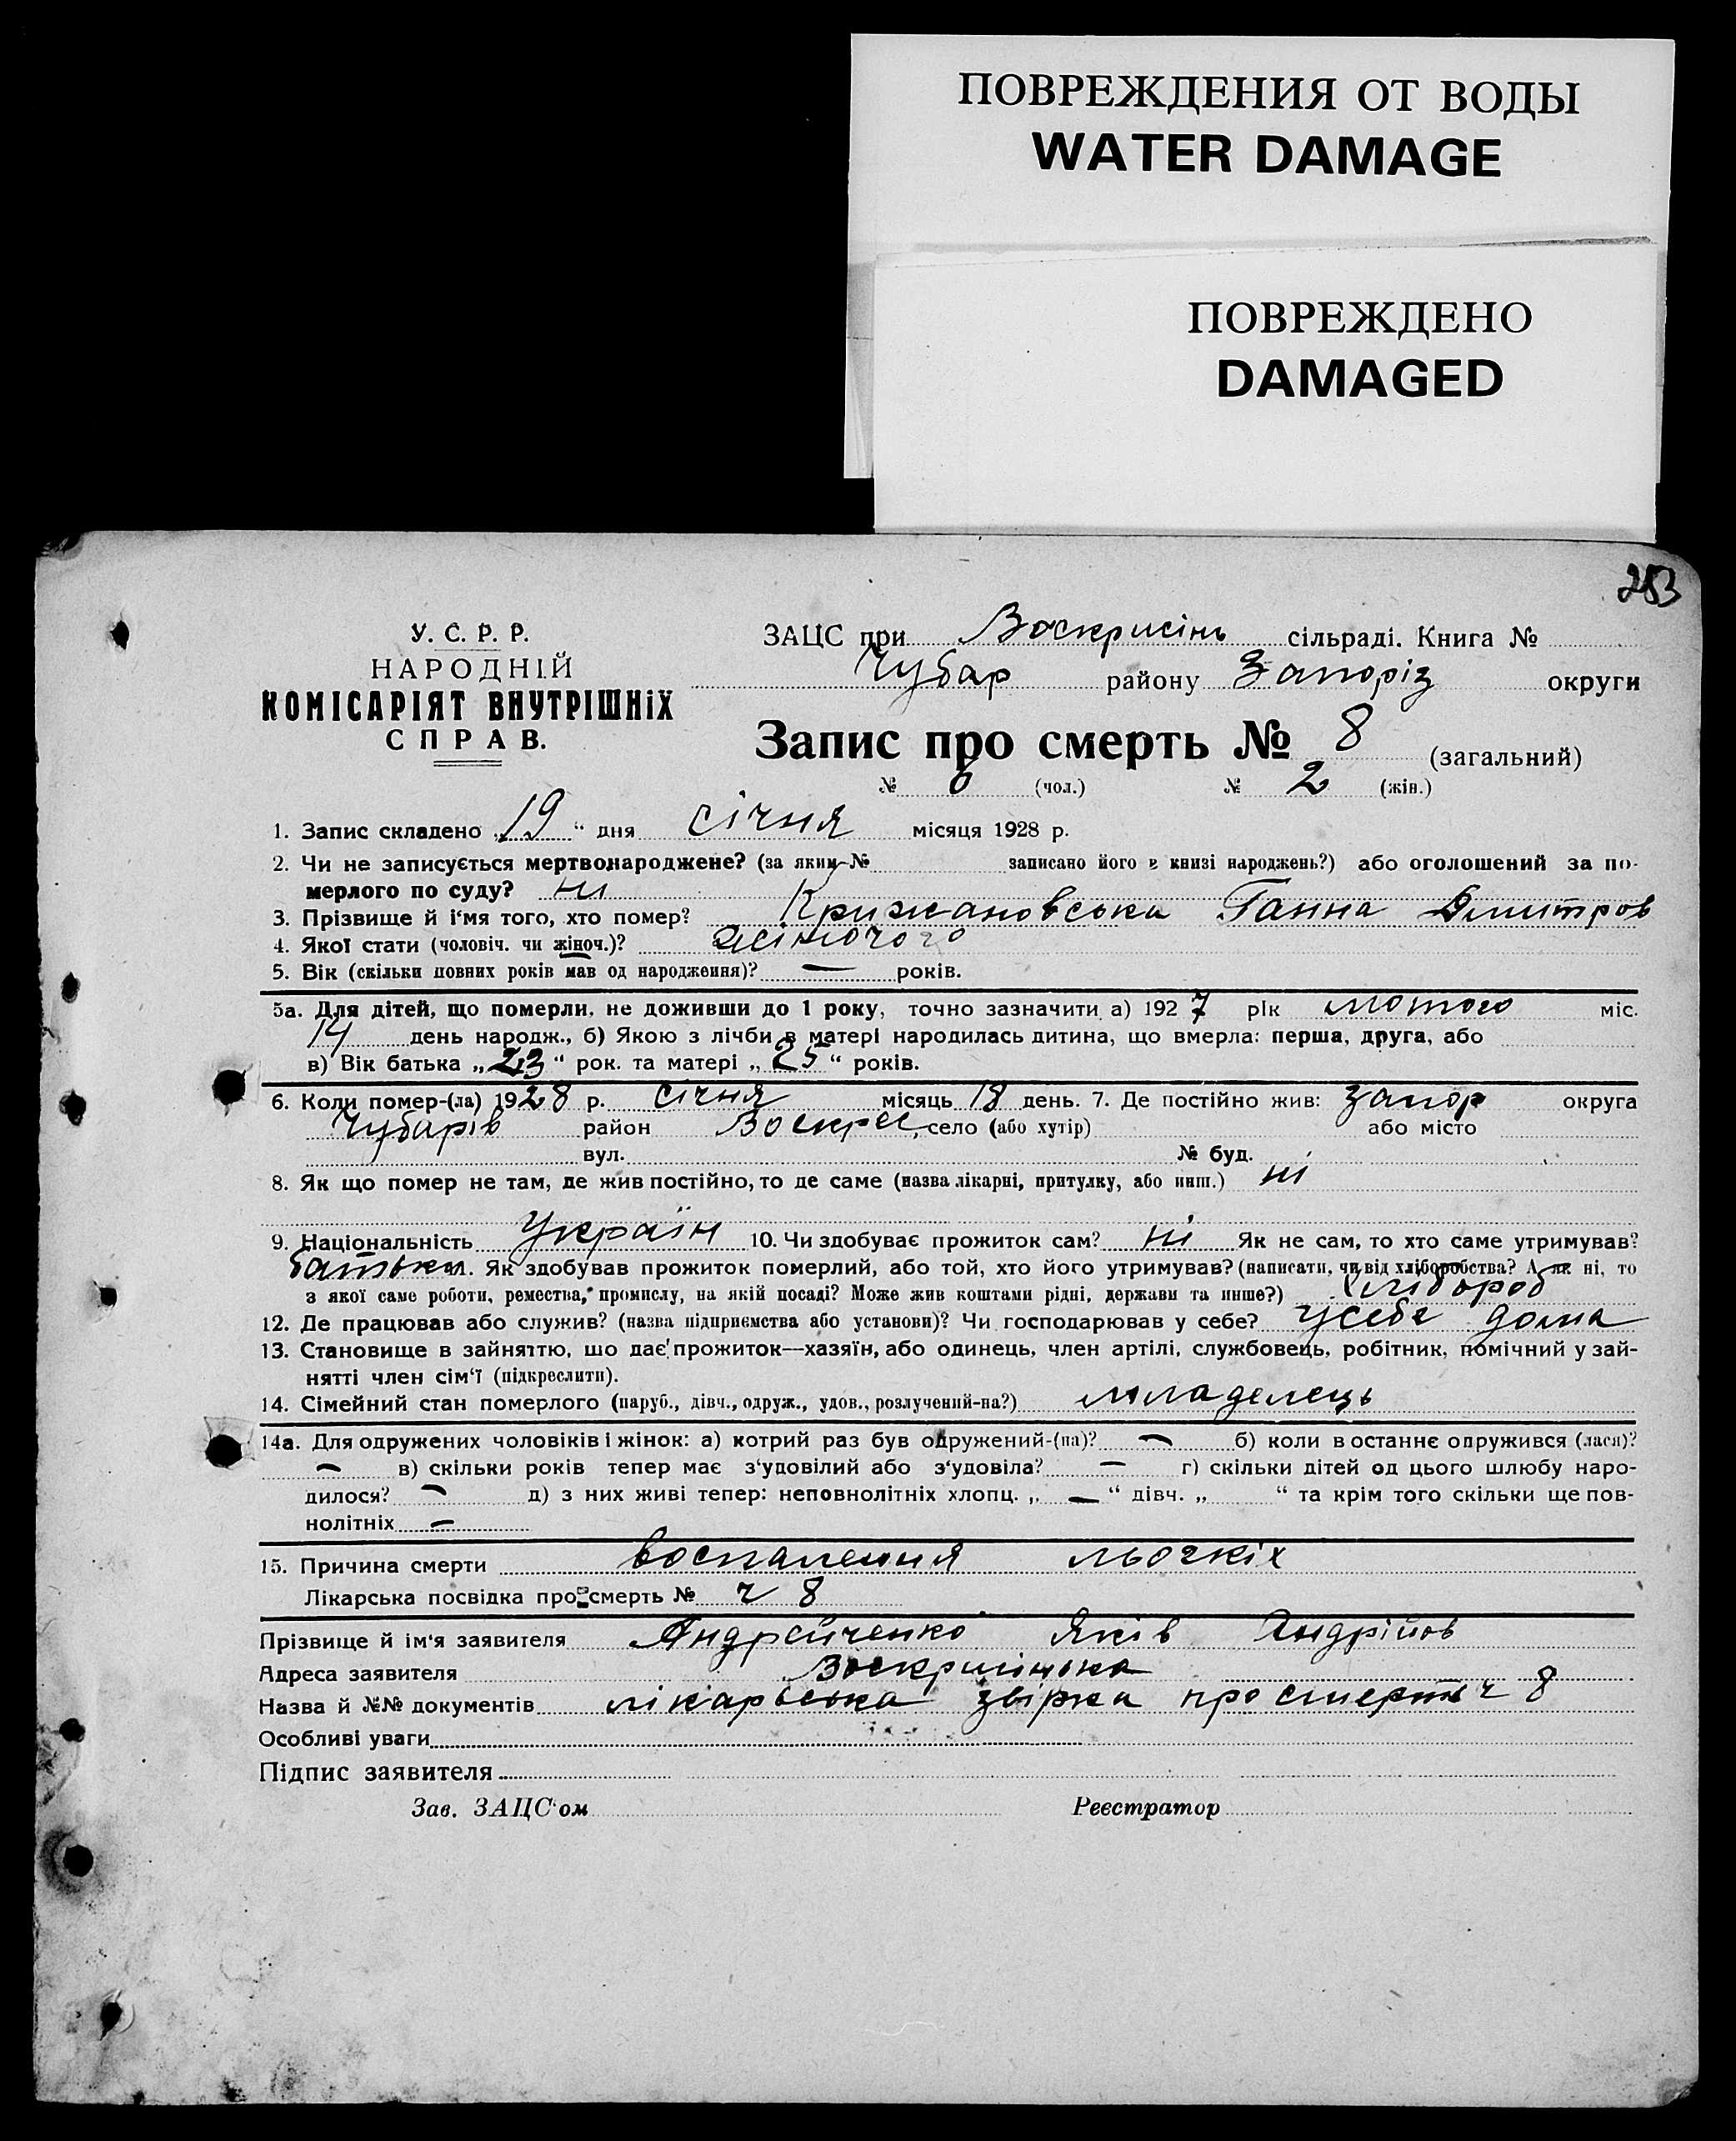 ПОВРЕЖДЕНИЯ ОТ ВОДЫ
WATER DAMAGE
ПОВРЕЖДЕНО
DAMAGED
253
У. С. Р. Р.
НАРОДНІЙ
КОМІСАРІЯТ ВНУТРІШНІХ
СПРАВ.
ЗАЦС при Воскрисінь сільраді. Книга №
Чубар району Запоріз округи
Запис про смерть № 8 (загальний)
№ 6 (чол.) № 2 (жін.)
1. Запис складено „19“ дня січня місяця 1928 р.
2. Чи не записується мертвонароджене? (за яким № записано його в книзі народжень?) або оголошений за по-
мерлого по суду? ні
3. Прізвище й і'мя того, хто помер? Крижановська Ганна Дмитров
4. Якої стати (чоловіч. чи жіноч.)? жіночого
5. Вік (скільки повних років мав од народження)? — років.
5а. Для дітей, що померли, не доживши до 1 року, точно зазначити а) 1927 рік лютого міс.
14 день народж., б) Якою з лічби в матері народилась дитина, що вмерла: перша, друга, або
в) Вік батька „23“ рок. та матері „25“ років.
6. Коли помер-(ла) 1928 р. січня місяць 18 день. 7. Де постійно жив: Запор округа
Чубарів район Воскрес, село (або хутір) або місто
вул. № буд.
8. Як що помер не там, де жив постійно, то де саме (назва лікарні, притулку, або инш.) ні
9. Національність Україн 10. Чи здобуває прожиток сам? ні Як не сам, то хто саме утримував?
батьки. Як здобував прожиток померлий, або той, хто його утримував? (написати, чи від хліборобства? А як ні, то
з якої саме роботи, ремества, промислу, на якій посаді? Може жив коштами рідні, держави та инше?) хлібороб
12. Де працював або служив? (назва підприємства або установи)? Чи господарював у себе? усебе дома
13. Становище в зайняттю, що дає прожиток—хазяїн, або одинець, член артілі, службовець, робітник, помічний у зай-
нятті член сім'ї (підкреслити).
14. Сімейний стан померлого (паруб., дівч., одруж., удов., розлучений-на?) младенець
14а. Для одружених чоловіків і жінок: а) котрий раз був одружений-(на)? — б) коли в останнє одружився (лася)?
— в) скільки років тепер має з'удовілий або з'удовіла? — г) скільки дітей од цього шлюбу наро-
дилося? — д) з них живі тепер: неповнолітніх хлопц. „—“ дівч. „ “ та крім того скільки ще пов-
нолітніх —
15. Причина смерти воспаления льогкіх
Лікарська посвідка про смерть № ч 8
Прізвище й ім'я заявителя Андрейченко Яків Андрійов
Адреса заявителя Воскрисінська
Назва й №№ документів лікарська звірка про смерть ч 8
Особливі уваги
Підпис заявителя
Зав. ЗАЦС'ом Реєстратор